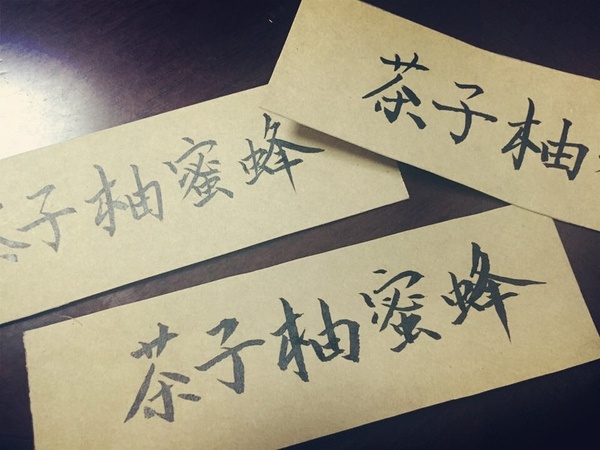 茶子柚
茶子柚蜜蜂
茶子柚蜜蜂